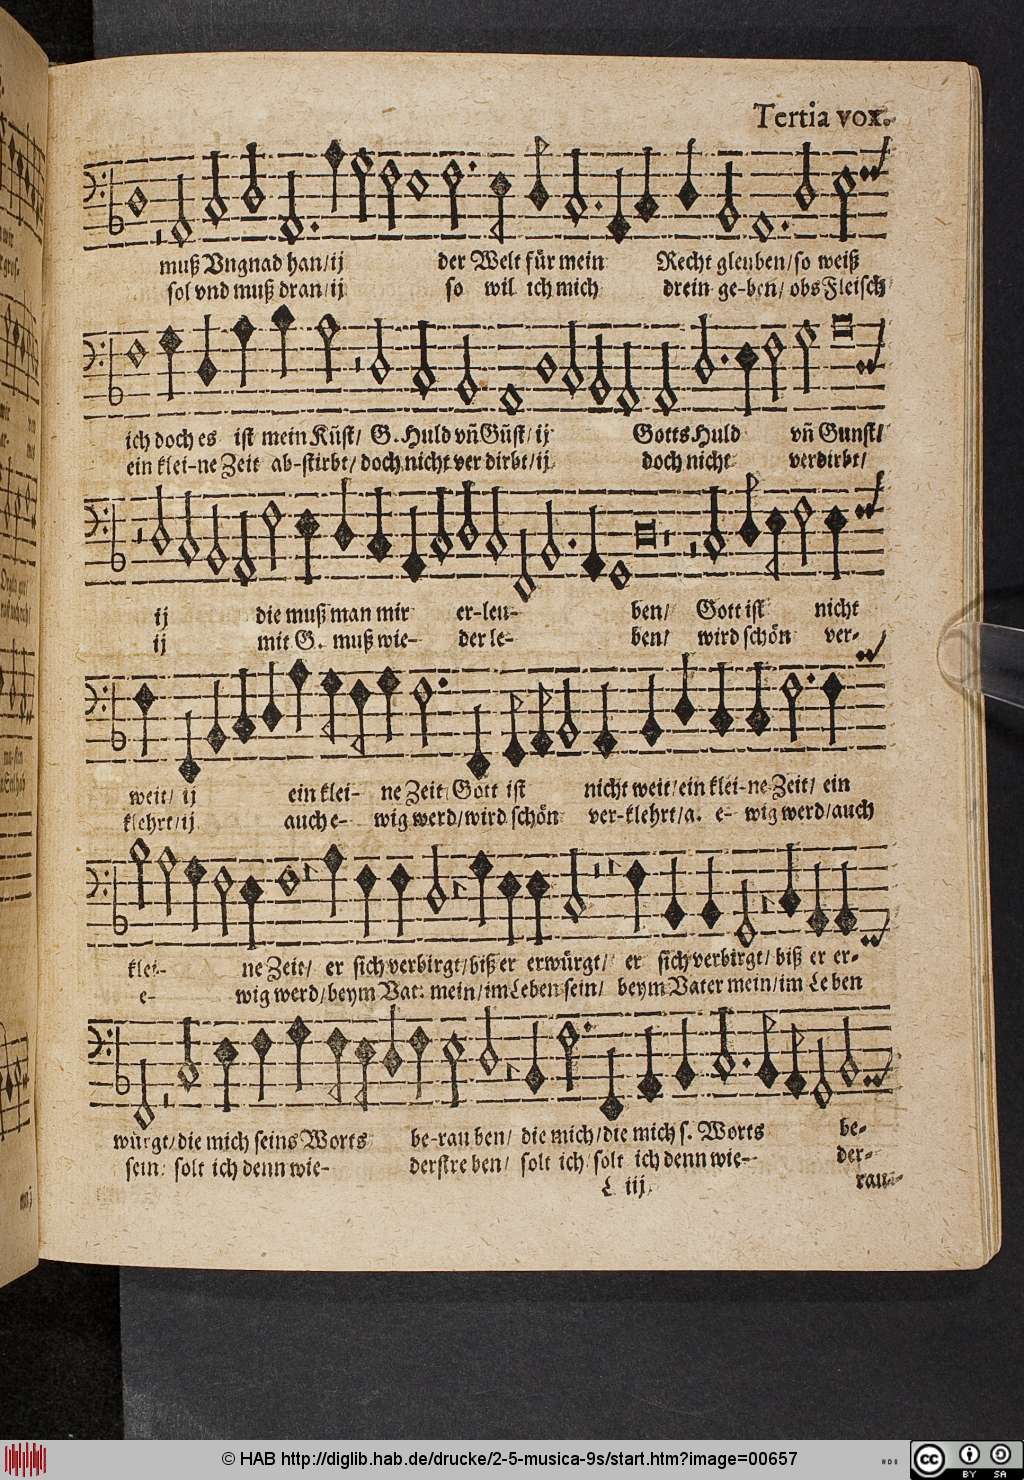 Tertia vox.
muß Vngnad han/ij der Welt für mein Recht gleuben/so weiß
sol vnd muß dran/ij so wil ich mich drein ge-ben/ obs Fleisch
ich doch es ist mein Küst/ G. Huld vñ Güst/ij Gotts Huld vñ Gunst/
ein klei-ne Zeit ab-stirbt/ doch nicht ver dirbt/ij doch nicht verdirbt/
ij die muß man mir er-leu- ben/ Gott ist nicht
ij mit G. muß wie- der le- ben/ wird schön ver-
weit/ ij ein klei- ne Zeit Gott ist nicht weit/ein klei-ne Zeit/ ein
klehrt/ij auch e- wig werd/wird schön ver-klehrt/a. e- wig werd/auch
klei- ne Zeit/ er sich verbirgt/biß er erwürgt/ er sich verbirgt/ biß er er-
e- wig werd/beym Vat: mein/im Leben sein/ beym Vater mein/im Leben
würgt/die mich seins Worts be-rau ben/ die mich/die mich s. Worts be-
sein: solt ich denn wie- derstre ben/ solt ich/ solt ich denn wie- der-
L iij rau-
© HAB http://diglib.hab.de/drucke/2-5-musica-9s/start.htm?image=00657
cc BY SA